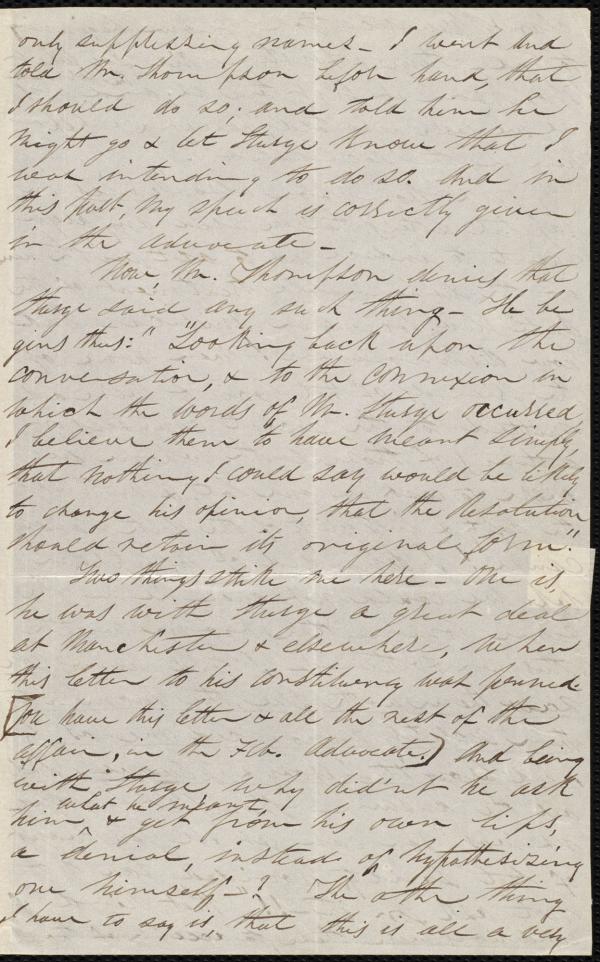 only suppressing names - I went and
told Mr. Thompson before hand, that
I should do so; and told him he
might go & let Sturge know that I
was intending to do so. And in
this part, my speech is correctly given
in the Advocate -
Now, Mr. Thompson denies that
Sturge said any such thing - He be
gins thus: " "Looking back upon the
conversation, & to the connexion in
which the words of Mr. Sturge occurred
I believe them to have meant simply,
that nothing I could say would be likely
to change his opinion, that the Resolution
should retain its original form."
Two things strike me here - One is,
he was with Sturge a great deal
at Manchester & elsewhere, when
this letter to his constituency was penned.
[you have this letter & all the rest of the
affair, in the Feb. Advocate.) And being
with Sturge, why did'nt he ask
what he meant,
him & get from his own lips,
a denial, instead of hypothesizing
one himself - ? The other thing
I have to say is, that this is all a very